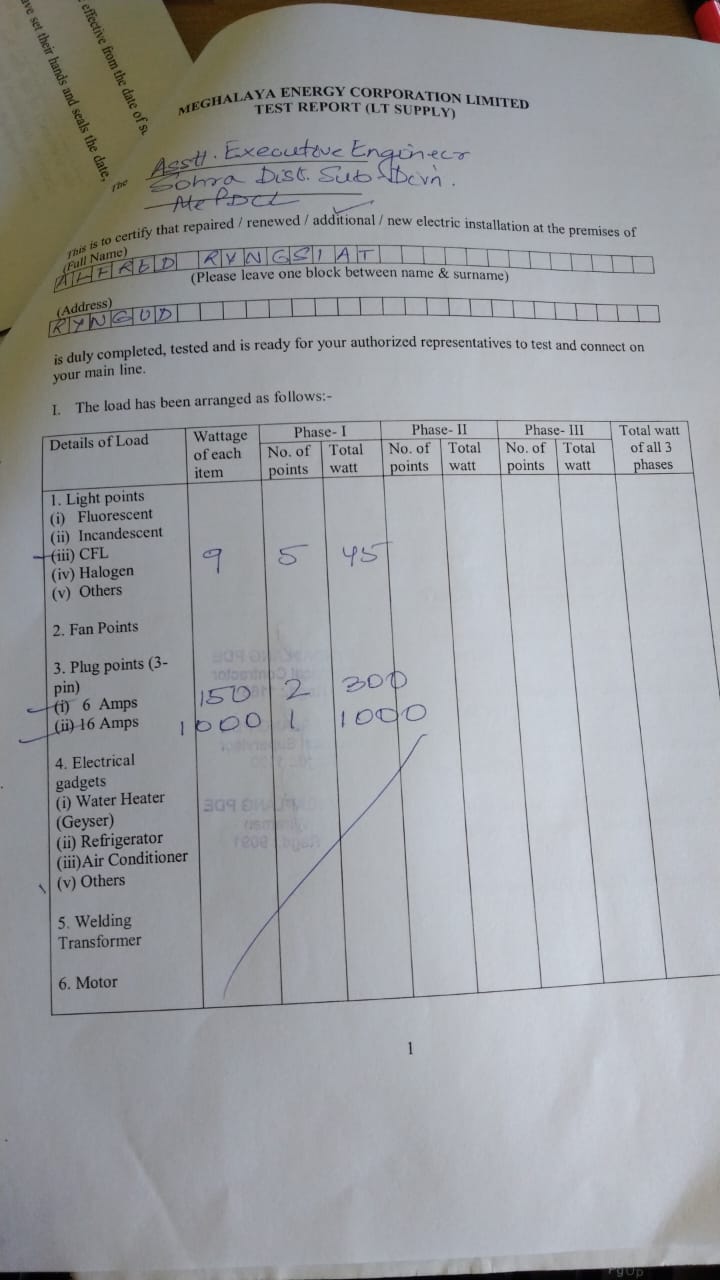 effective from the date of
ave set their hands and seals the date,
The
MEGHALAYA ENERGY CORPORATION LIMITED
TEST REPORT (LT SUPPLY)
Asstt. Executive Engineer
Sohra Dist. Sub-Divn.
MePDCL
This is to certify that repaired / renewed / additional / new electric installation at the premises of
(Full Name)
ALFRED RYNGSIAT
(Please leave one block between name & surname)
(Address)
RYNGUD
is duly completed, tested and is ready for your authorized representatives to test and connect on
your main line.
I. The load has been arranged as follows:-
Details of Load Wattage of each item Phase- I No. of points Total watt Phase- II No. of points Total watt Phase- III No. of points Total watt Total watt of all 3 phases
1. Light points
(i) Fluorescent
(ii) Incandescent
(iii) CFL 9 5 45
(iv) Halogen
(v) Others
2. Fan Points
3. Plug points (3-
pin)
(i) 6 Amps 150 2 300
(ii) 16 Amps 1000 1 1000
4. Electrical
gadgets
(i) Water Heater
(Geyser)
(ii) Refrigerator
(iii)Air Conditioner
(v) Others
5. Welding
Transformer
6. Motor
1
PgUp